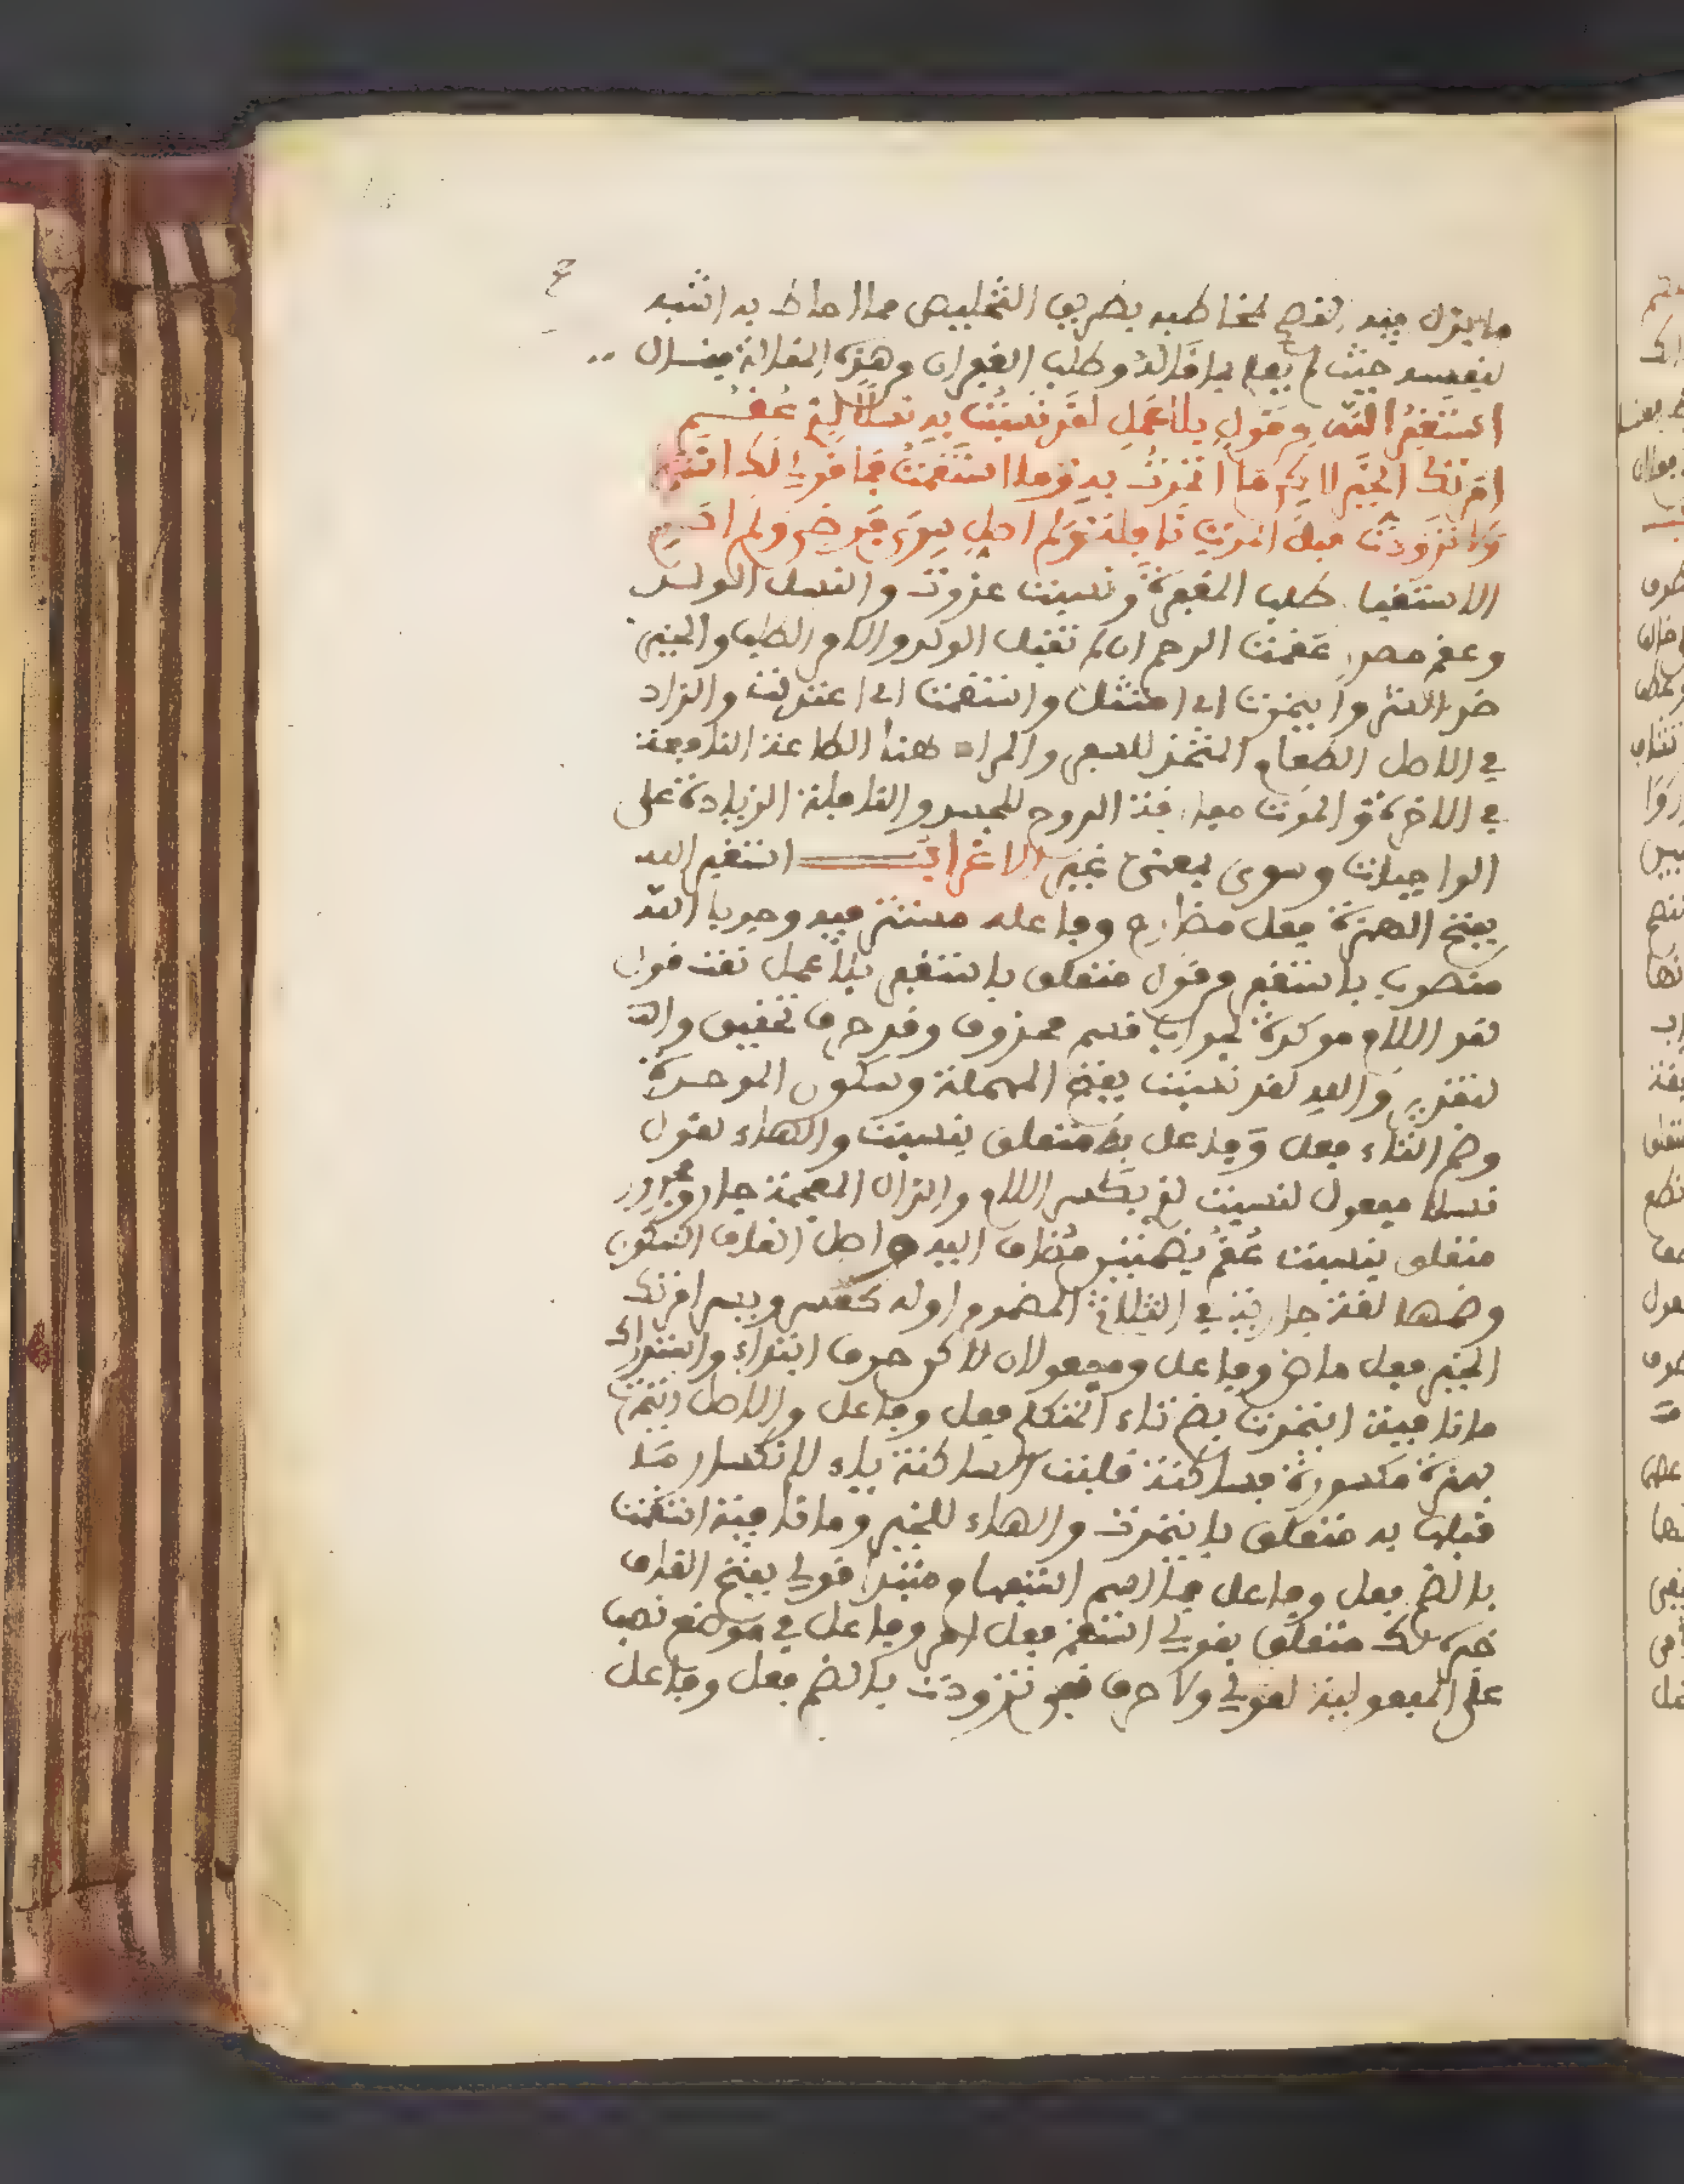 ما يدل فيه النصح لمخاطبه بطريق التخليص مما احاط به اشبه
لنفسه حيث لم يعمل بما قاله وطلب الغفران من هذه المقالة فقال
استغفر الله من قول بلا عمل لقد نسبت به نسلا لذي عقم
امرتك الخير لاكن ما اتمرت به وما استقمت فما قولي لك استقم
ولا تزودت قبل الموت نافلة ولم اصل سوى فرض ولم اصم
الاستغفار طلب المغفرة ونسبت عزوت والنسل الولد
وعقم مصدر عقمت الرحم ان لم تقبل الولد والامر الطلب والخير
ضد الشر وايتمرت اي امتثلت واستقمت اي اعتدلت والزاد
في الاصل الطعام المتخذ للسفر والمراد هنا الطاعة النافعة
في الاخرة والموت مفارقة الروح للجسد والنافلة الزيادة على
الواجبات وسوى بمعنى غير الاعراب استغفر الله
بفتح الهمزة فعل مضارع وفاعله مستتر فيه وجوبا الله
منصوب باستغفر من قول متعلق باستغفر بلا عمل نعت قول
لقد اللام موكدة لجواب قسم محذوف وقد حرف تحقيق
تقديره والله لقد نسبت بفتح المهملة وسكون الموحدة
وضم التاء فعل وفاعل به متعلق بنسبت والهاء لقول
نسلا مفعول لنسبت لذي بكسر اللام والذال المعجمة جار ومجرور
متعلق بنسبت عقم بضمتين مضاف اليه واصل القاف السكون
وضمها لغة جارية في الثلاثي المضموم اوله كعسر ويسر امرتك
الخير فعل ماض وفاعل ومفعولان لاكن حرف ابتداء واستدراك
ما نافية ايتمرت بضم تاء المتكلم فعل وفاعل والاصل ائتمرت
بهمزة مكسورة فساكنة قلبت الساكنة ياء لانكسار ما
قبلها به متعلق بايتمرت والهاء للخير وما نافية استقمت
بالضم فعل وفاعل فما اسم استفهام مبتدا قولي بفتح القاف
خبره لك متعلق بقولي استقم فعل امر وفاعل في موضع نصب
على المفعولية لقولي ولا حرف نفي تزودت بالضم فعل وفاعل